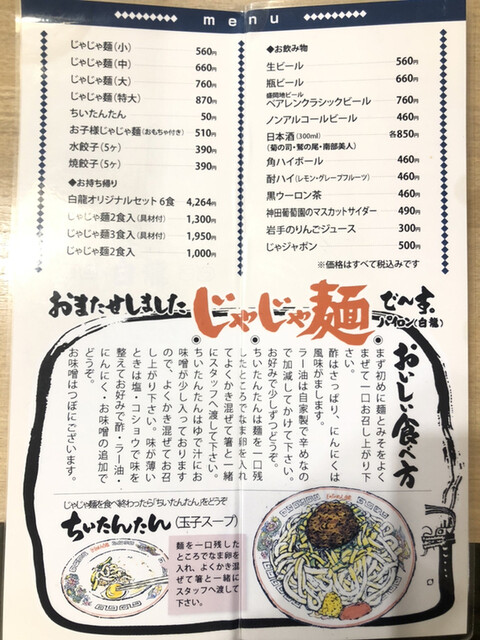 menu
じゃじゃ麺(小) 560円
じゃじゃ麺(中) 660円
じゃじゃ麺(大) 760円
じゃじゃ麺(特大) 870円
ちいたんたん 50円
お子様じゃじゃ麺(おもちゃ付き) 510円
水餃子(5ヶ) 390円
焼餃子(5ヶ) 390円
◆お持ち帰り
白龍オリジナルセット6食 4,264円
じゃじゃ麺2食入(具材付) 1,300円
じゃじゃ麺3食入(具材付) 1,950円
じゃじゃ麺2食入 1,000円
◆お飲み物
生ビール 560円
瓶ビール 660円
盛岡地ビール
ベアレンクラシックビール 760円
ノンアルコールビール 460円
日本酒(300ml) 各850円
(菊の司・鷲の尾・南部美人)
角ハイボール 460円
酎ハイ(レモン・グレープフルーツ) 460円
黒ウーロン茶 460円
神田葡萄園のマスカットサイダー 490円
岩手のりんごジュース 300円
じゃジャボン 500円
※価格はすべて税込みです
おまたせしました
じゃじゃ麺
で〜す。
パイロン(白龍)
おいしい食べ方
●まず初めに麺とみそをよく
まぜて一口お召し上がり下
さい。
酢はさっぱり、にんにくは
風味がまします。
ラー油は自家製で辛めなの
で加減してかけて下さい。
お好みで少しずつどうぞ。
●ちいたんたんは麺を一口残
したところでなま卵を入れ
てよくかき混ぜて箸と一緒
にスタッフへ渡して下さい。
ちいたんたんはゆで汁にお
味噌が少し入っております
ので、よくかき混ぜてお召
し上がり下さい。味が薄い
ときは塩・コショウで味を
整えてお好みで酢・ラー油・
にんにく・お味噌の追加で
どうぞ。
お味噌はつぼにございます。
じゃじゃ麺を食べ終わったら「ちいたんたん」をどうぞ
ちいたんたん(玉子スープ)
麺を一口残した
ところでなま卵
を入れ、よくかき
混ぜて箸と一緒に
スタッフへ渡して
下さい。